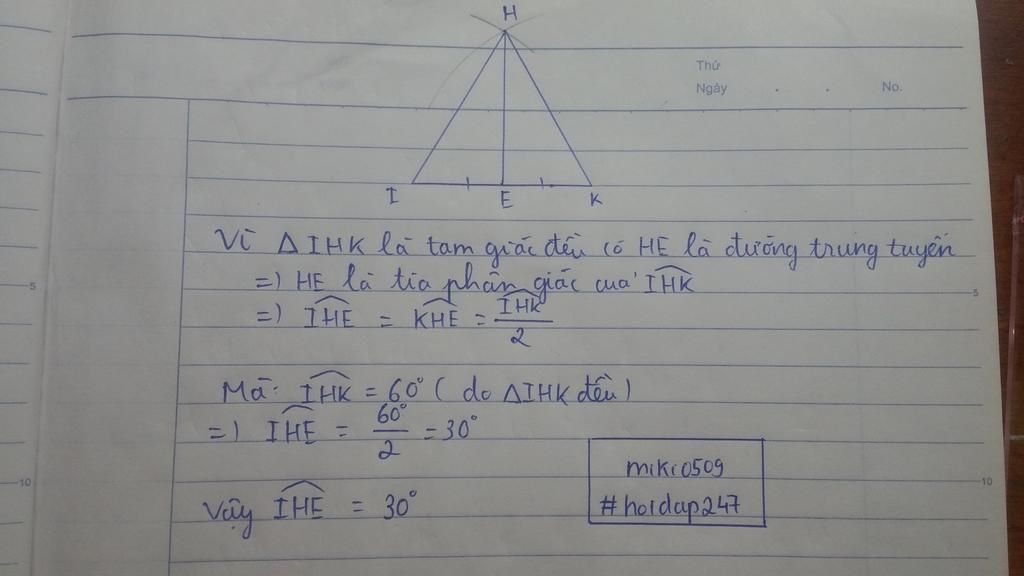 H
Thứ
Ngày . . No.
I E K
Vì ΔIHK là tam giác đều có HE là đường trung tuyến
=) HE là tia phân giác của \widehat{IHK}
5 5
=) \widehat{IHE} = \widehat{KHE} = \frac{\widehat{IHK}}{2}
Mà: \widehat{IHK} = 60° ( do ΔIHK đều)
=) \widehat{IHE} = \frac{60°}{2} = 30°
miki0509
10 10
Vậy \widehat{IHE} = 30°
#hoidap247